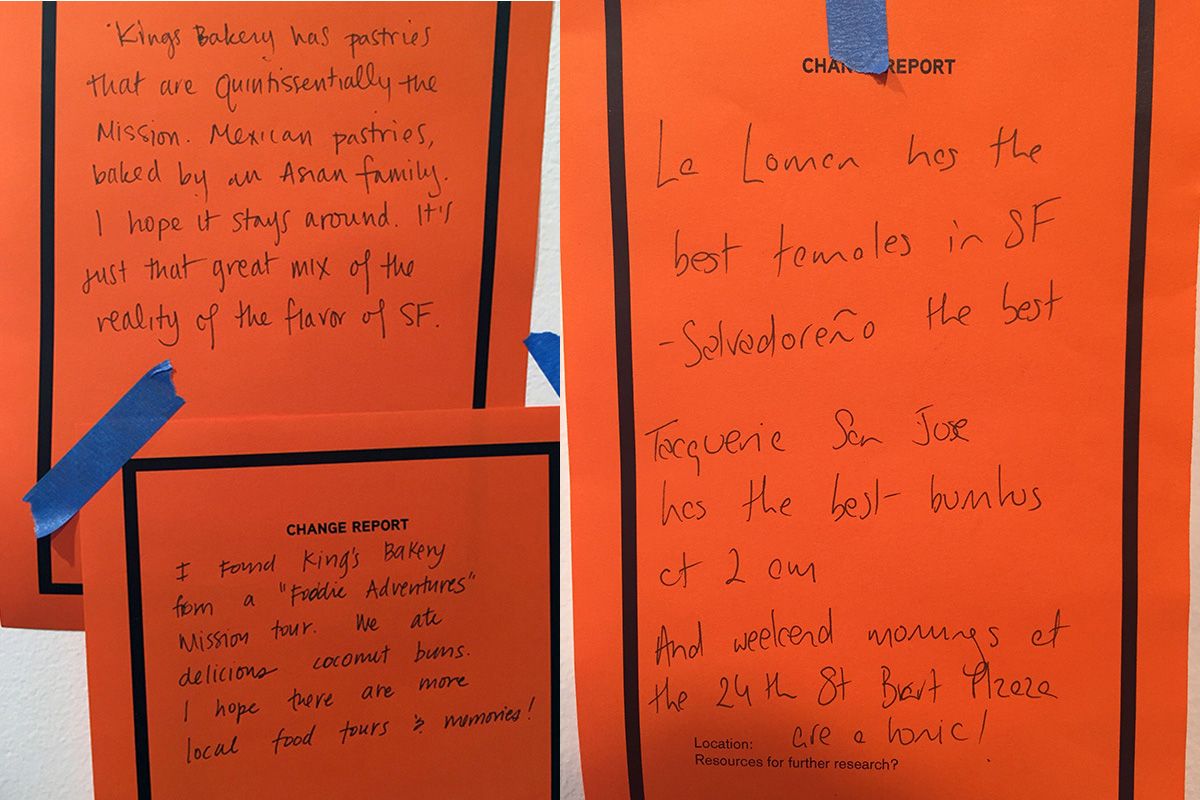 Kings Bakery has pastries
that are Quintissentially the
Mission. Mexican pastries,
baked by an Asian family.
I hope it stays around. It's
just that great mix of the
reality of the flavor of SF.
CHANGE REPORT
I Found King's Bakery
from a "Foodie Adventures"
Mission tour. We ate
delicious coconut buns.
I hope there are more
local food tours & memories!
CHAN REPORT
La Loman has the
best tamales in SF
-Salvadoreño the best
Tacquerie San Jose
has the best burritos
at 2 am
And weekend mornings at
the 24th St Bart Plzaza
are a tonic!
Location:
Resources for further research?